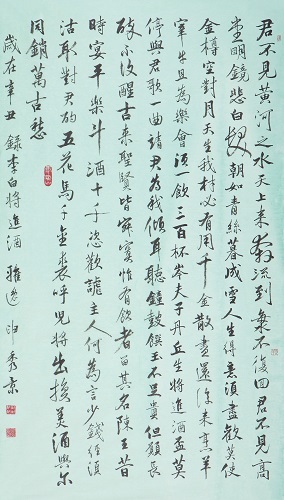 君不見黃河之水天上來奔流到海不復回君不見高
堂明鏡悲白髮朝如青絲暮成雪人生得意須盡歡莫使
金樽空對月天生我材必有用千金散盡還復來烹羊
宰牛且為樂會須一飲三百杯岑夫子丹丘生將進酒盃莫
停與君歌一曲請君為我傾耳聽鐘鼓饌玉不足貴但願長
醉不復醒古來聖賢皆寂寞惟有飲者留其名陳王昔
時宴平樂斗酒十千恣歡謔主人何為言少錢徑須
沽取對君酌五花馬千金裘呼兒將出換美酒與爾
同銷萬古愁
歲在辛丑 錄李白將進酒 申秀京